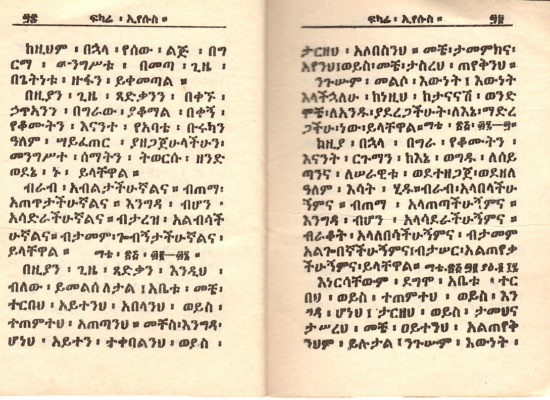 ፶፭ ፍካሬ ፡ ኢየሱስ ።
ከዚህም ፡ በኋላ ፡ የሰው ፡ ልጅ ፡ በግ
ርማ ፡ መንግሥቱ ፡ በመጣ ፡ ጊዜ ፡
በጌትነቱ ፡ ዙፋን ፡ ይቀመጣል ።
በዚያን ፡ ጊዜ ፡ ጻድቃንን ፡ በቀኙ ፡
ኃጥአንን ፡ በግራው ፡ ያቆማል ፡ በቀኝ ፡
የቆሙትን ፡ እናንተ ፡ የአባቴ ፡ ቡሩካን
ዓለም ፡ ሳይፈጠር ፡ ያዘጋጀሁላችሁን፡
መንግሥተ ፡ ሰማትን ፡ ትወርሱ ፡ ዘንድ
ወደኔ ፡ ኑ ፡ ይላቸዋል ።
ብራብ ፡ አብልታችሁኛልና ። ብጠማ፡
አጠጥታችሁኛልና ። እንግዳ ፡ ብሆን ፡
አሳድራችሁኛልና ። ብታረዝ ፡ አልብሳች
ሁኛልና ። ብታመም፡ጐብኝታችሁኛልና ፡
ይላቸዋል ።
በዚያን ፡ ጊዜ ፡ ጻድቃን ፡ እንዲህ ፡
ብለው ፡ ይመልሱለታል ፤ አቤቱ ፡ መቼ፡
ተርበህ ፡ አይተንህ ፡ አበላንህ ፡ ወይስ ፡
ተጠምተህ ፡ አጠጣንህ ። መቸስ፡እንግዳ፡
ሆነህ ፡ አይተን ፡ ተቀበልንህ ፡ ወይስ ፡
ፍካሬ ፡ ኢየሱስ ።
ታርዘህ ፡ አለበስንህ ። መቼ፡ታመምክና፡
አየንህ፤ወይስ፡መቼ፡ታስረህ ፡ ጠየቅንህ ።
ንጉሡም ፡ መልሶ፤እውነት ፤ እውነት
እላችኋለሁ ፡ ከነዚህ ፡ ከታናናሽ ፡ ወንድ
ሞቼ፡ለአንዱ፡ያደረጋችሁት፡ለእኔ፡ማድረ
ጋችሁ፡ነው፡ይላቸዋል።
ከዚያ ፡ በኋላ ፡ በግራ ፡ የቆሙትን ፡
እናንት ፡ ርኩማን ፡ ከእኔ ፡ ወግዱ ፡ ለሰይ
ጣንና ፡ ለሠራዊቱ ፡ ወደተዘጋጀ፡ወደዘለ
ዓለም ፡ እሳት ፡ ሂዱ።ብራብ፡አላበላችሁ
ኝምና ። ብጠማ ፡ አላጠጣችሁኝምና ።
እንግዳ ፡ ብሆን ፡ አላሳደራችሁኝምና ።
ብራቆት ፡ አላለበሳችሁኝምና ፡ ብታመም
አልጐበኛችሁኝምና፡ብታሠር፡አልጠየቃ
ችሁኝምና፡ይላቸዋል ።
እነርሳቸውም ፡ ደግሞ ፡ አቤቱ ፡ ተር
በህ ፡ ወይስ ፡ ተጠምተህ ፡ ወይስ ፡ እን
ግዳ ፡ ሆነህ ፤ ታርዘህ ፡ ወይስ ፡ ታመህና
ታሥረህ ፡ መቼ ፡ ዐይተንህ ፡ አልጠየቅ
ንህም ፡ ይሉታል ፤ ንጉሡም ፡ እውነት ፡